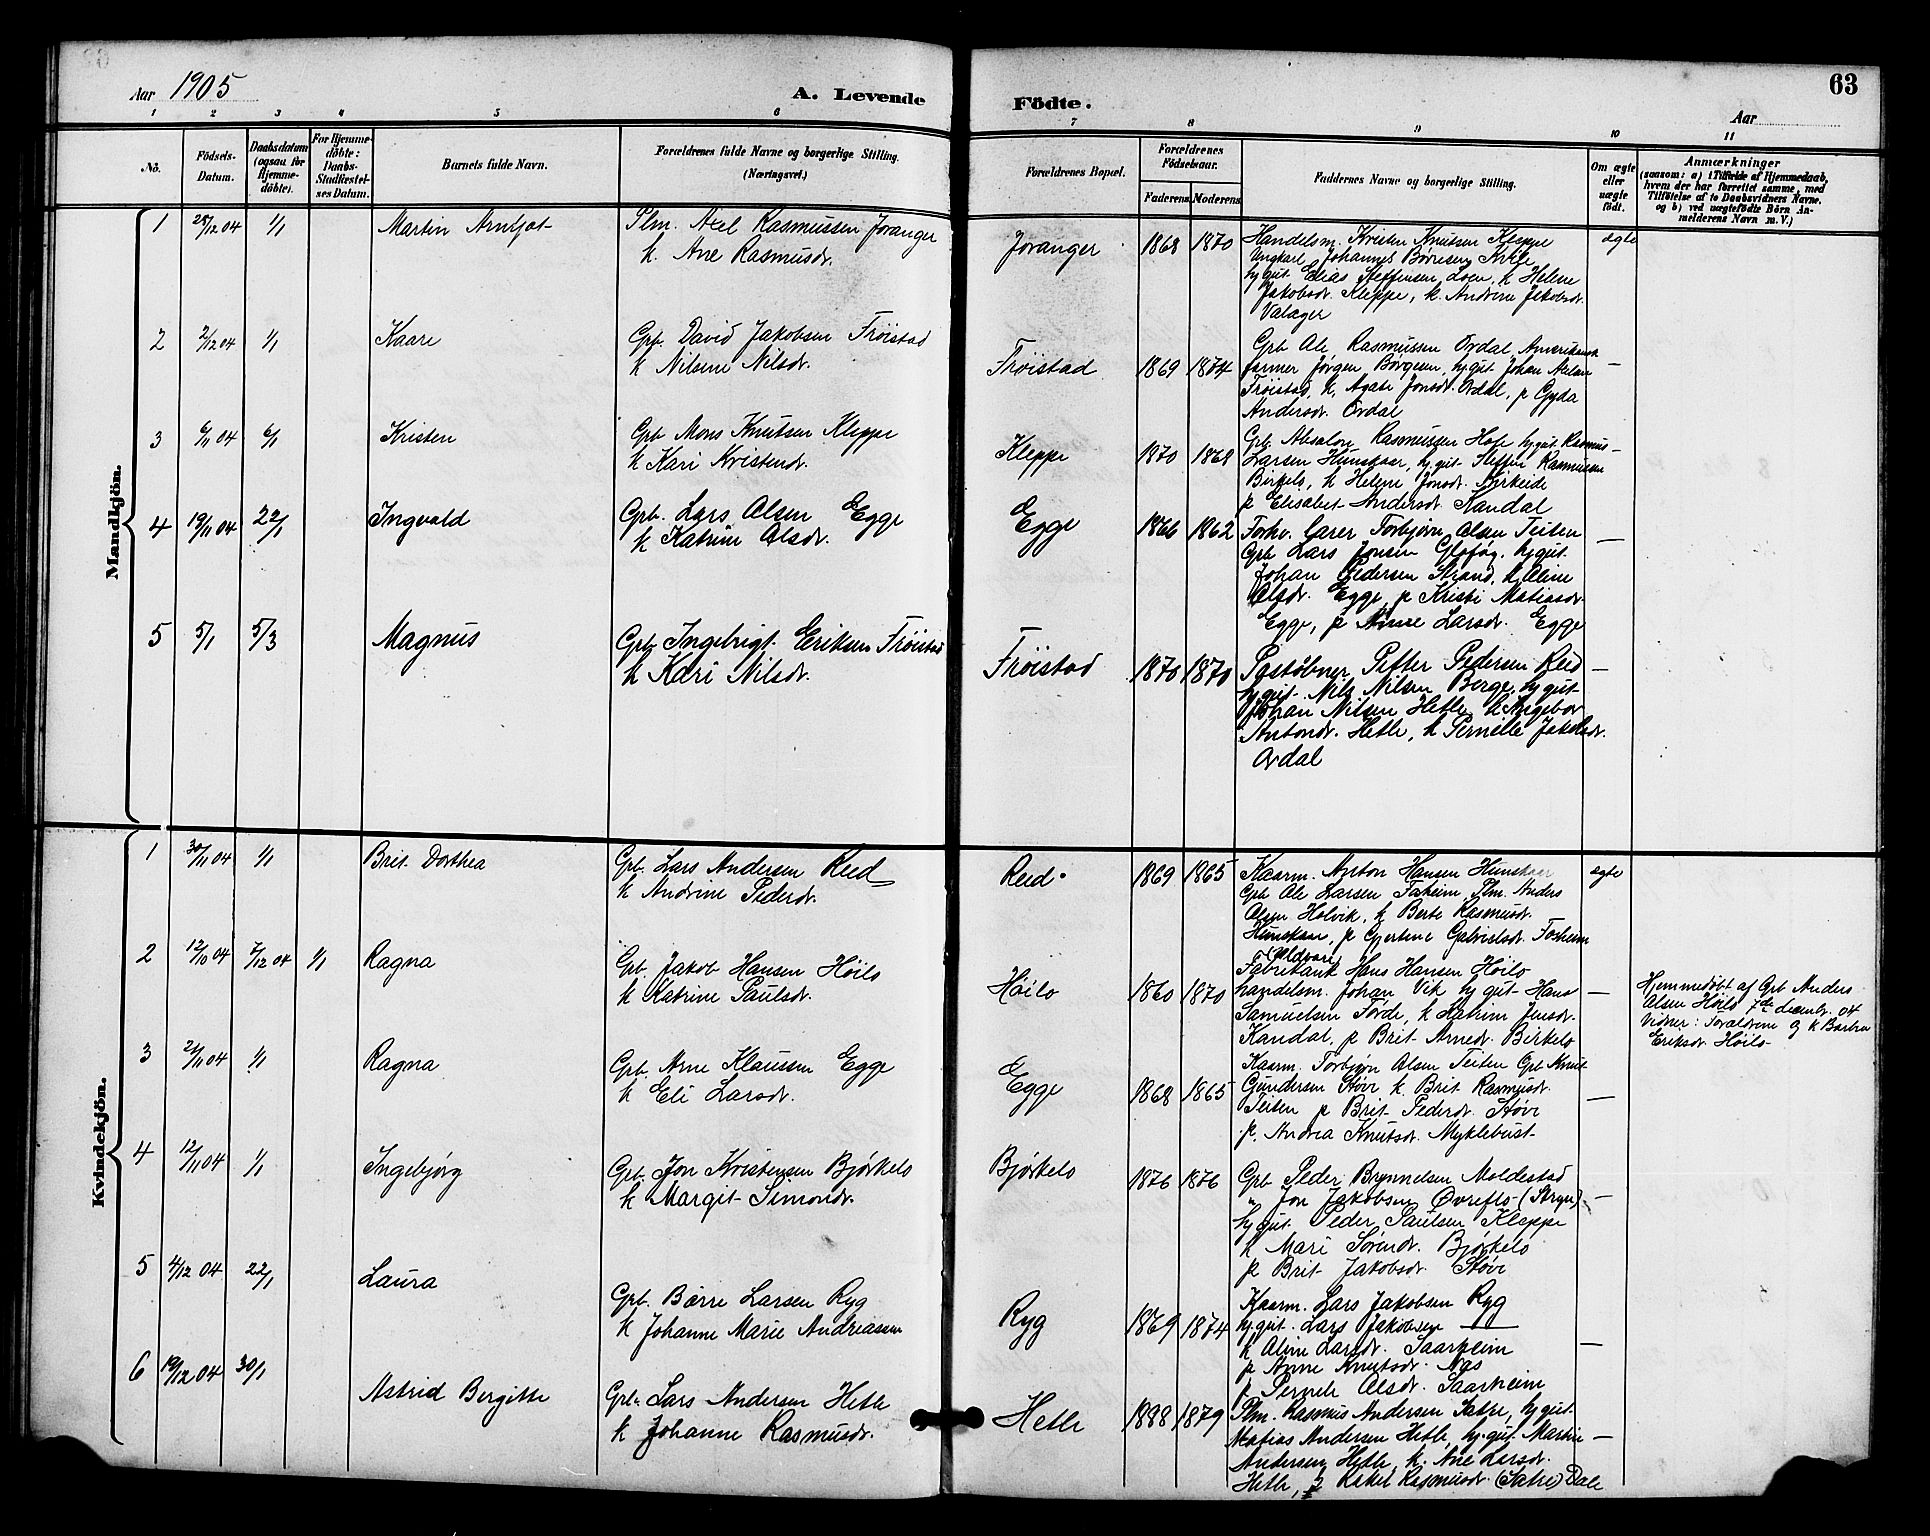 Aar 1905
A. Levende
Födte.
63
Aar
1 2 3 4 5 6 7 8 9 10 11
No.
Födsels-Datum.
Daabsdatum (ogsaa for Hjemme-döbte).
For Hjemme-döbte: Daabs-Stadfæstel-ses Datum.
Barnets fulde Navn.
Forældrenes fulde Navne og borgerlige Stilling. (Næringsvei.)
Forældrenes Bopæl.
Forældrenes Födselsaar.
Faderens Moderens
Faddernes Navne og borgerlige Stilling.
Om ægte eller uægte födt.
Anmærkninger
(saasom: a) i Tilfælde af Hjemmedaab, hvem der har forrettet samme, med Tilföielse af to Daabsvidners Navne. og b) ved uægtefödte Börn An-melderens Navn m. V.)
Mandkjön.
1 28/12 04 1/1 Martin Arnljot Plm. Axel Rasmussen Joranger
k. Ane Rasmusdr.
Joranger 1868 1870 Handelsm. Kristen Knutsen Kleppe ægte
Ungkarl Johannes Børresen
hj gut Elias Steffensen, k Helene
Jakobsdr. Kleppe, k. Andrine Jakobsdr.
Valager
2 2/12 04 1/1 Kaare Grb. David Jakobsen Frøistad
k Nilsine Nilsdr.
Frøistad 1869 1874 Grb Ole Rasmussen Ordal, Amerikansk
farmer Jørgen Børgesen, hj. gut Johan Axelsen —
Frøistad, k, Agate Jonsdr. Ordal, p Gyda
Andersdr. Ordal
3 6/11 04 6/1 Kristen Grb Mons Knutsen Kleppe
k Kari Kristendr.
Kleppe 1870 1868 Grb. Absalon Rasmussen Hole hj gut Rasmus —
Larsen Hunskaar, hj gut Steffen Rasmussen
Birkelo, k Helene Jonsdr. Birkeide
p Elisabet Andersdr. Kandal
4 19/11 04 22/1 Ingvald Grb. Lars Olsen Egge
k Katrine Olsdr.
Egge 1866 1862 Forhv. lærer Torbjørn Olsen Teiten
Grb Lars Jonsen Gloføg, hj gut —
Johan Pedersen Strand, k Oline
Olsdr. Egge, p Kristi Matiasdr.
Egge, p Anne Larsdr. Egge
5 5/1 5/3 Magnus Grb Ingebrigt Eriksen Frøistad
k Kari Nilsdr.
Frøistad 1870 1870 Postøbner Petter Pedersen Reed —
hj gut Nils Nilsen Berge, hj gut
Johan Nilsen Hetle, k Ingebor
Antondr. Hetle, k Pernille Jakobsdr.
Ordal
Kvindekjön.
1 30/11 04 1/1 Brit Dorthea Grb. Lars Andersen Reed
k Andrine Pedersdr.
Reed 1869 1865 Kaarm. Anton Hansen Hunskaar ægte
Grb Ole Larsen Taheim, Plm. Anders
Olsen Holvik, k Berte Rasmusdr.
Hunskaar, p Gjertine Gabrielsdr. Fosheim
2 12/10 04 7/12 04 1/1 Ragna Grb. Jakob Hansen Høilo
k Katrine Paulsdr.
Høilo 1860 1870 (Uldvare)
Fabrikant Hans Hansen Høilo
handelsm. Johan Vik, hj gut Hans —
Samuelsen Førde, k Katrine Jensdr.
Kandal, p Brit Arnedr. Birkelo
Hjemmedøbt af Grb Anders
Olsen Høilo 7de decembr. 04
Vidner: Forældrene og k Barbra
Eriksdr. Høilo
3 21/11 04 1/1 Ragna Grb. Arne Klaussen Egge
k Eli Larsdr.
Egge 1868 1865 Kaarm. Torbjørn Olsen Teiten Grb Knut
Gundersen Støve k. Brit Rasmusdr.
Teiten p Brit Pedersdr. Støve —
p. Andrea Knutsdr. Myklebust
4 12/11 04 1/1 Ingebjørg Grb. Jon Kristensen Bjørkelo
k Margit Simondr.
Bjørkelo 1876 1876 Grb Peder Brynnelsen Moldestad
" Jon Jakobsen Øvreflo (Stryn) —
hj gut Peder Paulsen Kleppe
k Mari Sørendr. Bjørkelo
p Brit Jakobsdr. Støve
5 4/12 04 22/1 Laura Grb. Børre Larsen Ryg
k Johanne Marie Andreassen
Ryg 1869 1874 Kaarm. Lars Jakobsen Ryg
hj. gut. Lars Jakobsen —
k Oline Larsdr. Saarheim —
p Anne Knutsdr. Nos
p Pernele Olsdr. Saarheim
6 19/12 04 30/1 Astrid Bergitte Grb. Lars Andersen Hetle
k Johanne Rasmusdr.
Hetle 1888 1879 Plm. Rasmus Andersen Sætre, hj gut
Matias Andersen Hetle, hj. gut Martin —
Andersen Hetle, k. Ane Larsdr.
Hetle, p Rakel Rasmusdr. (Sætre) Dale